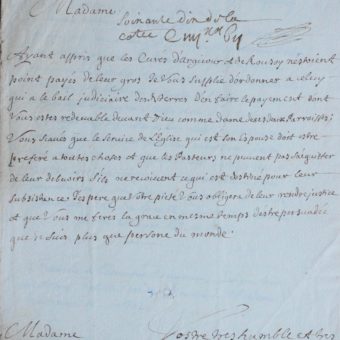 Madame
Soixante dix de la
cotte
Ayant appris que les Cures d'arguour et de Rousoy nestoient
point payés de leur gros Je Vous Supplie d'ordonner a celuy
qui a le bail judiciaire des Terres d'en faire le payement dont
Vous estes redevable devant Dieu comme dame des deux Parroisses
Vous scavés que le Service de l'Eglise qui est son Espouse doit estre
preferé a toutes choses et que les Pasteurs ne peuvent pas s'aquitter
de leur debuoirs s'ils ne recoivent ce qui est destiné pour leur
Subsistance. J'espere que votre pieté Vous obligera de leur rendre justice
et que Vous me ferés la grace en mesme temps destre persuadée
que je suis plus que persone du monde.
Madame
Vostre tres humble et tres